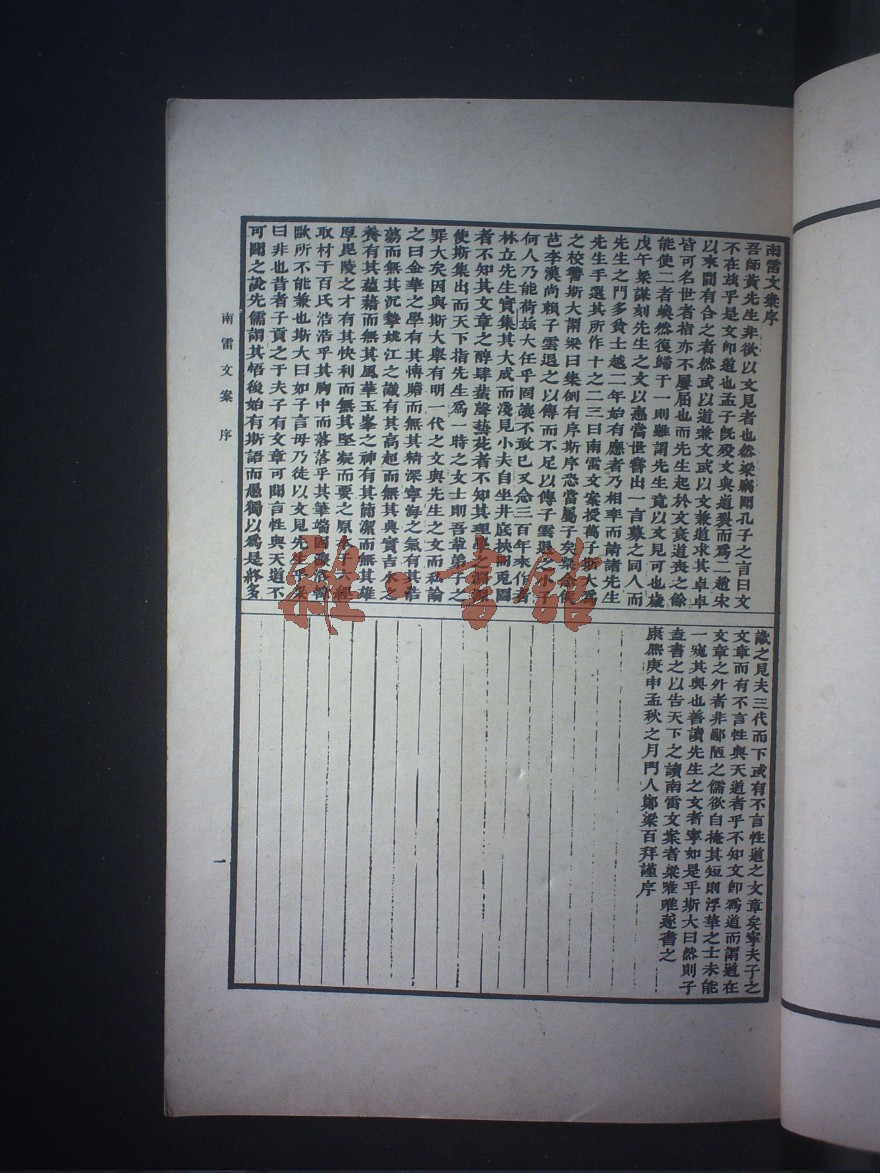 南雷文案序
吾師黃先生非欲以文見者也然梁竊聞孔子之言曰文
不在玆乎是文卽道也孟子旣歿文與道裂而爲二趙宋
以來間有合之者然或以道兼文或以文兼道求其卓卓
皆可名世者指亦不屢屈也而先生起於文衰道喪之餘
能使二者煥然復歸于一則雖謂先生竟以文見可也歲
戊午梁謀刻先生之文以惠當世嘗出一言募之同人而
先生之門多貧士越二年始有應者乃相率而請諸先生
先生手選其所作十之二三曰南雷文案授萬子斯大爲
之校讐斯大謂梁曰集刻有序斯序恐當屬子矣梁念侯
芭李漢尚賴子雲退之以傳而不足以傳子雲退之小子
何人乃能荷玆大任乎固讓不敢已又念三百年來作者
林立先生實集其大成而淺見小夫自坐井底挾闚兎園
者不知其文章之醇肆蜚聲藝花者不知其理學之淵源
使斯集出而天下指先生爲一時之文士則吾輩弟子之
罪大矣因與斯大舉有明一代之文與先生之文而私論
之曰金華之學有其博贍而無其精深寧海之氣有其浩
蕩而無其沉摯姚江之識有其高起而無其典實吉水之
養有其蘊藉而無其風華玉峯之神有其簡潔而無其雄
厚毘陵之才有其快利而無其堅凝而要之原本于六經
取材于百氏浩浩乎其胸中而落落乎其筆端固
歐所不能兼也斯大曰如子言毋乃徒以文見先生乎梁
曰非也昔者子貢之于夫子有文章可聞言性與天道不
可聞之說先儒謂其悟後始有斯語而愚獨以爲是終多
識之見夫三代而下或有不言性道之文章矣寧夫子之
文章而有不言性與天道者乎不知文卽爲道而謂道在
文章之外者非鄙陋之儒欲自掩其短則浮華之士未能
一窺其奧也善讀先生之文者寧如是乎斯大曰然則子
盍書之以告天下之讀南雷文案者梁唯唯遂書之
康熙庚申孟秋之月門人鄭梁百拜謹序
南雷文案 序
一
雜·書館